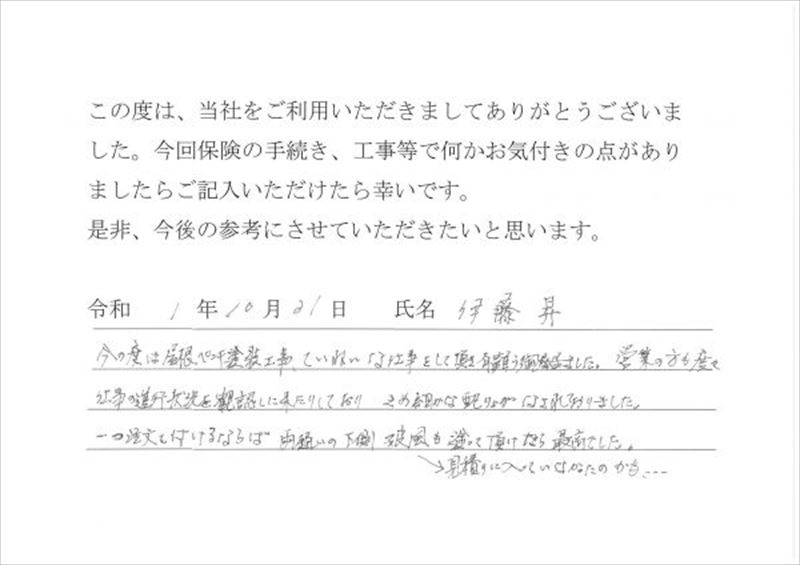 この度は、当社をご利用いただきましてありがとうございま
した。今回保険の手続き、工事等で何かお気付きの点があり
ましたらご記入いただけたら幸いです。
是非、今後の参考にさせていただきたいと思います。
令和 1 年 10 月 21 日 氏名 伊藤 昇
今の度は屋根ペンキ塗装工事、ていねいな仕事をして頂き有難う御座ました。営業の方も度々
仕事の進行状況を観認しに来たりしており きめ細かな配りょがなされておりました。
一つ注文を付けるならば 雨樋いの下側 破風も塗って頂けたら最高でした。
→見積りに入っていなかったのかも...